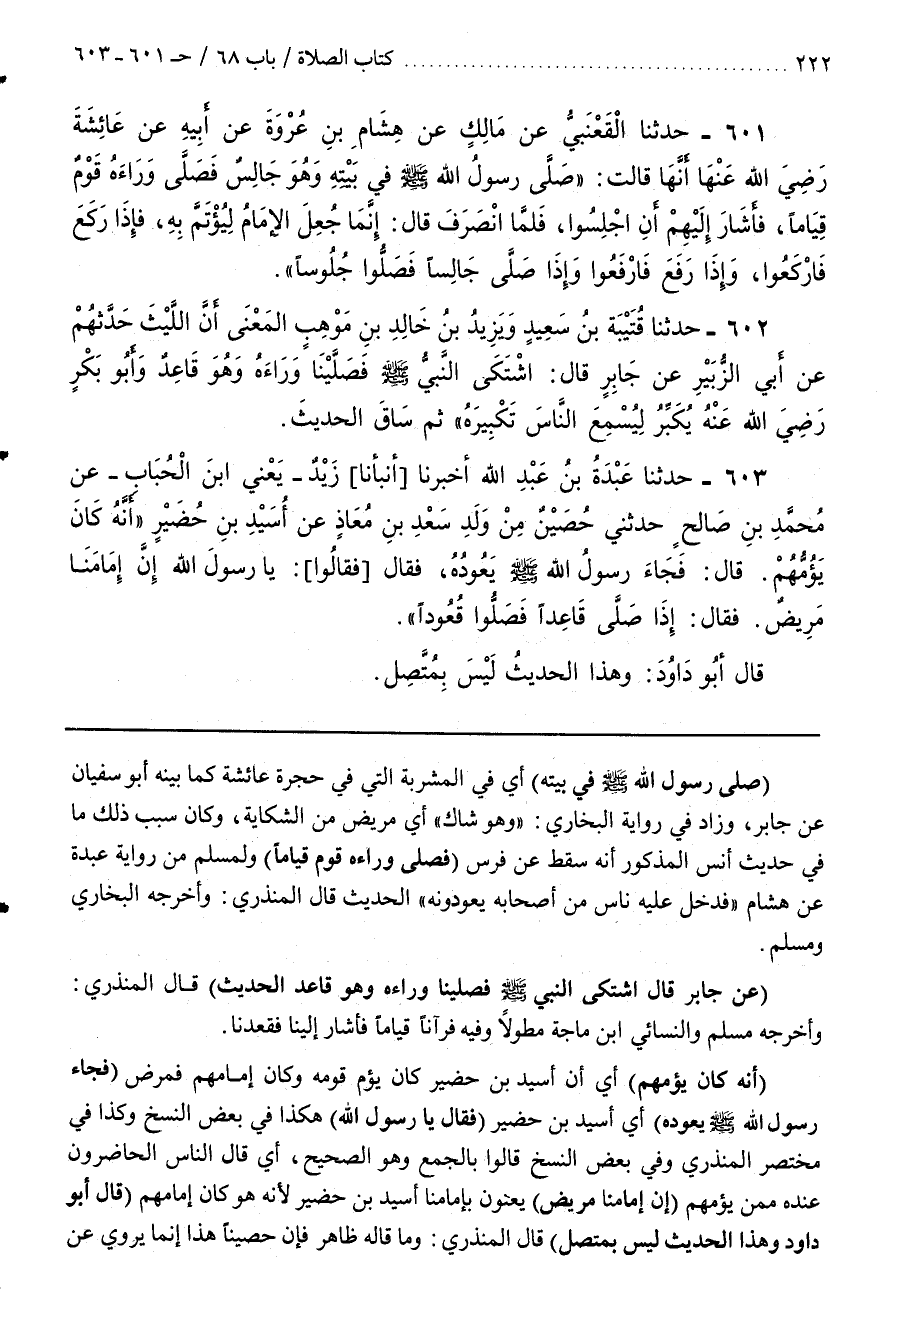 ٢٢٢ ........................................ كتاب الصلاة / باب ٦٨ / حـ ٦٠١ ـ ٦٠٣
٦٠١ ـ حدثنا الْقَعْنَبيُّ عن مَالِكٍ عن هِشَامِ بنِ عُرْوَةَ عن أَبِيهِ عن عَائِشَةَ
رَضِيَ الله عَنْهَا أَنَّهَا قالت: «صَلَّى رسولُ الله ﷺ في بَيْتِهِ وَهُوَ جَالِسٌ فَصَلَّى وَرَاءَهُ قَوْمٌ
قِيَاماً، فَأَشَارَ إِلَيْهِمْ أَنِ اجْلِسُوا، فَلمَّا انْصَرَفَ قال: إِنَّمَا جُعِلَ الإِمَامُ لِيُؤْتَمَّ بِهِ، فإِذَا رَكَعَ
فَارْكَعُوا، وَإِذَا رَفَعَ فَارْفَعُوا وَإِذَا صَلَّى جَالِساً فَصَلُّوا جُلُوساً».
٦٠٢ ـ حدثنا قُتَيْبَةُ بنُ سَعِيدٍ وَيَزِيدُ بنُ خَالِدِ بنِ مَوْهِبٍ المَعْنَى أَنَّ اللَّيْثَ حَدَّثَهُمْ
عن أَبي الزُّبَيْرِ عن جَابِرٍ قال: اشْتَكَى النَّبيُّ ﷺ فَصَلَّيْنَا وَرَاءَهُ وَهُوَ قَاعِدٌ وَأَبُو بَكْرٍ
رَضِيَ الله عَنْهُ يُكَبِّرُ لِيُسْمِعَ النَّاسَ تَكْبِيرَهُ» ثم سَاقَ الحديثَ.
٦٠٣ ـ حدثنا عَبْدَةُ بنُ عَبْدِ الله أخبرنا [أنبأنا] زَيْدٌ ـ يَعْني ابنَ الْحُبَابِ ـ عن
مُحمَّدِ بنِ صَالحٍ حدثني حُصَيْنٌ مِنْ وَلَدِ سَعْدِ بنِ مُعَاذٍ عن أُسَيْدِ بنِ حُضَيْرٍ «أَنَّهُ كَانَ
يَؤُمُّهُمْ. قال: فَجَاءَ رسولُ الله ﷺ يَعُودُهُ، فقال [فقالُوا]: يا رسولَ الله إِنَّ إِمَامَنَا
مَرِيضٌ. فقال: إِذَا صَلَّى قَاعِداً فَصَلُّوا قُعُوداً».
قال أَبُو دَاوُدَ: وهذا الحديثُ لَيْسَ بِمُتَّصِل.
(صلى رسول الله ﷺ في بيته) أي في المشربة التي في حجرة عائشة كما بينه أبو سفيان
عن جابر، وزاد في رواية البخاري: «وهو شاك» أي مريض من الشكاية، وكان سبب ذلك ما
في حديث أنس المذكور أنه سقط عن فرس (فصلى وراءه قوم قياماً) ولمسلم من رواية عبدة
عن هشام «فدخل عليه ناس من أصحابه يعودونه» الحديث قال المنذري: وأخرجه البخاري
ومسلم.
(عن جابر قال اشتكى النبي ﷺ فصلينا وراءه وهو قاعد الحديث) قال المنذري:
وأخرجه مسلم والنسائي ابن ماجة مطولاً وفيه فرآناً قياماً فأشار إلينا فقعدنا.
(أنه كان يؤمهم) أي أن أسيد بن حضير كان يؤم قومه وكان إمامهم فمرض (فجاء
رسول الله ﷺ يعوده) أي أسيد بن حضير (فقال يا رسول الله) هكذا في بعض النسخ وكذا في
مختصر المنذري وفي بعض النسخ قالوا بالجمع وهو الصحيح، أي قال الناس الحاضرون
عنده ممن يؤمهم (إن إمامنا مريض) يعنون بإمامنا أسيد بن حضير لأنه هو كان إمامهم (قال أبو
داود وهذا الحديث ليس بمتصل) قال المنذري: وما قاله ظاهر فإن حصيناً هذا إنما يروي عن